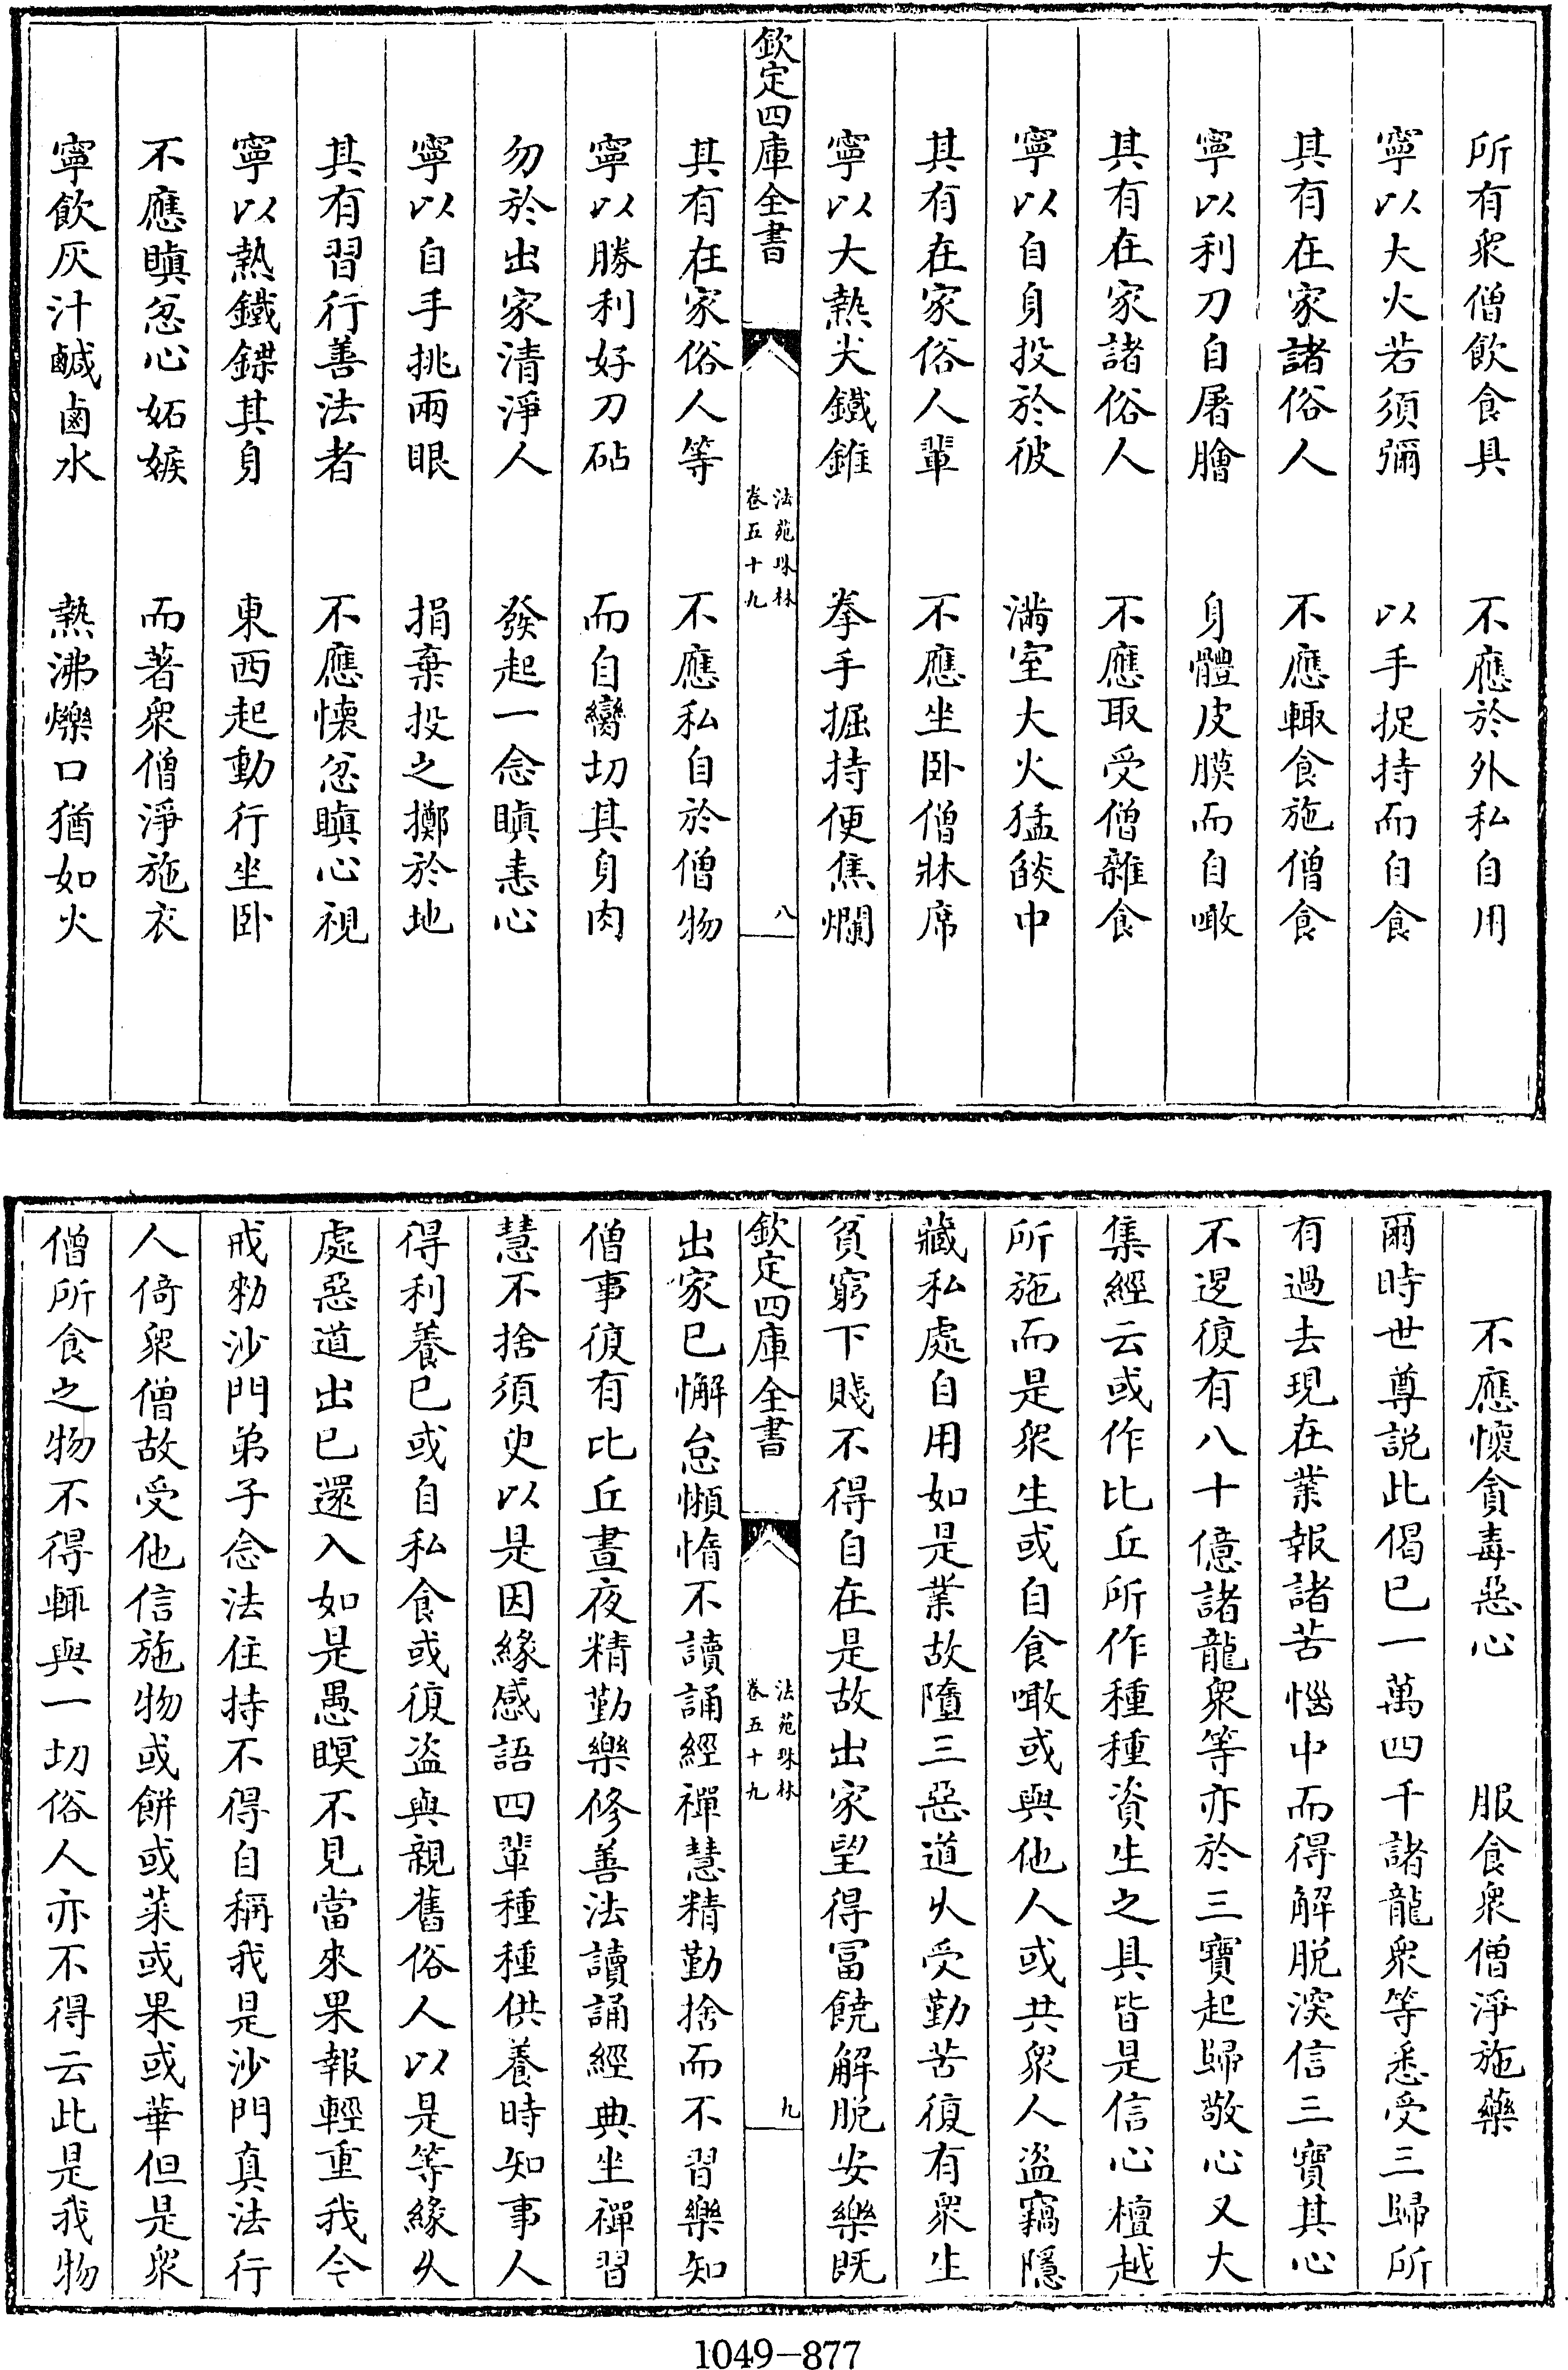 所有衆僧飲食具　不應於外私自用
寧以大火若須彌　以手捉持而自食
其有在家諸俗人　不應輙食施僧食
寧以利刀自屠膾　身體皮膜而自噉
其有在家諸俗人　不應取受僧雜食
寧以自身投於彼　滿室大火猛燄中
其有在家俗人輩　不應坐卧僧牀席
寧以大熱尖鐵錐　拳手掘持便焦爛
欽定四庫全書　法苑珠林　卷五十九　八
其有在家俗人等　不應私自於僧物
寧以勝利好刀砧　而自臠切其身肉
勿於出家清淨人　發起一念瞋恚心
寧以自手挑兩眼　捐棄投之擲於地
其有習行善法者　不應懐忿瞋心視
寧以熱鐵鍱其身　東西起動行坐卧
不應瞋忿心妬嫉　而著衆僧淨施衣
寧飲灰汁鹹鹵水　熱沸爍口猶如火
不應懷貪毒惡心　服食衆僧淨施藥
爾時世尊説此偈已一萬四千諸龍衆等悉受三歸所
有過去現在業報諸苦惱中而得解脱深信三寶其心
不退復有八十億諸龍衆等亦於三寶起歸敬心又大
集經云或作比丘所作種種資生之具皆是信心檀越
所施而是衆生或自食噉或與他人或共衆人盜竊隱
藏私處自用如是業故墮三惡道久受勤苦復有衆生
貧窮下賤不得自在是故出家望得富饒解脱安樂既
欽定四庫全書　法苑珠林　卷五十九　九
出家已懈怠懶惰不讀誦經禪慧精勤捨而不習樂知
僧事復有比丘晝夜精勤樂修善法讀誦經典坐禪習
慧不捨須臾以是因緣感語四輩種種供養時知事人
得利養已或自私食或復盜與親舊俗人以是等緣久
處惡道出已還入如是愚瞑不見當來果報輕重我今
戒勑沙門弟子念法住持不得自稱我是沙門真法行
人倚衆僧故受他信施物或餅或菜或果或華但是衆
僧所食之物不得輙與一切俗人亦不得云此是我物
1049-877